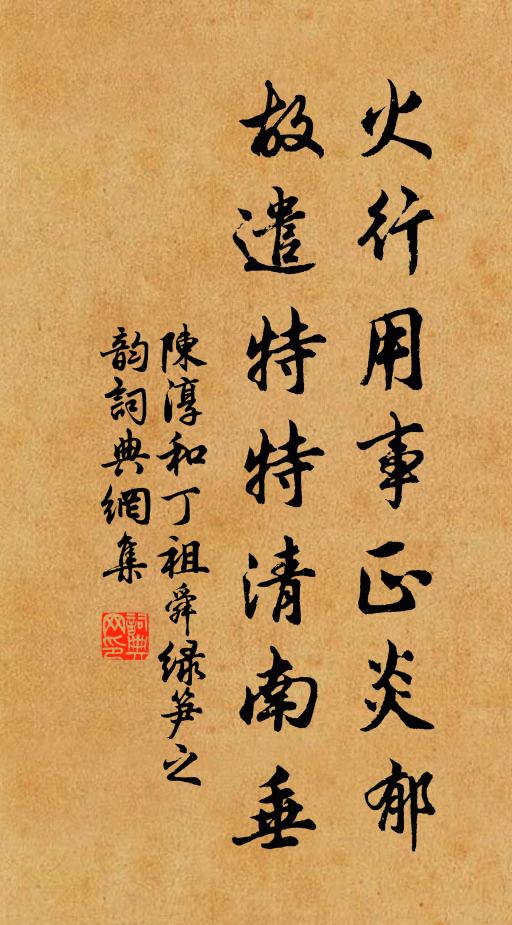 火行用事正炎郁
故遣特特清南垂
陳淳和丁祖舜緑笋之
韵詞典網集
詞典網印